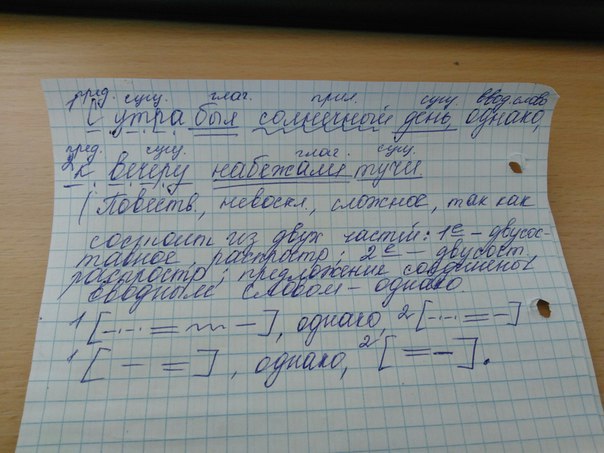 пред. сущ. глаг. прил. сущ. ввод. слово
1 С утра был солнечный день, однако,
пред. сущ. глаг. сущ.
2 к вечеру набежали тучи
(Повеств, невоскл, сложное, так как
состоит из двух частей: 1е – двусос-
тавное, распростр; 2е – двусост.
распростр; предложение соединены
вводным словом – однако.
1 [-.-.- = ~~~ –], однако, 2 [-.-.- = –]
1 [ – = ], однако, 2 [ = – ].